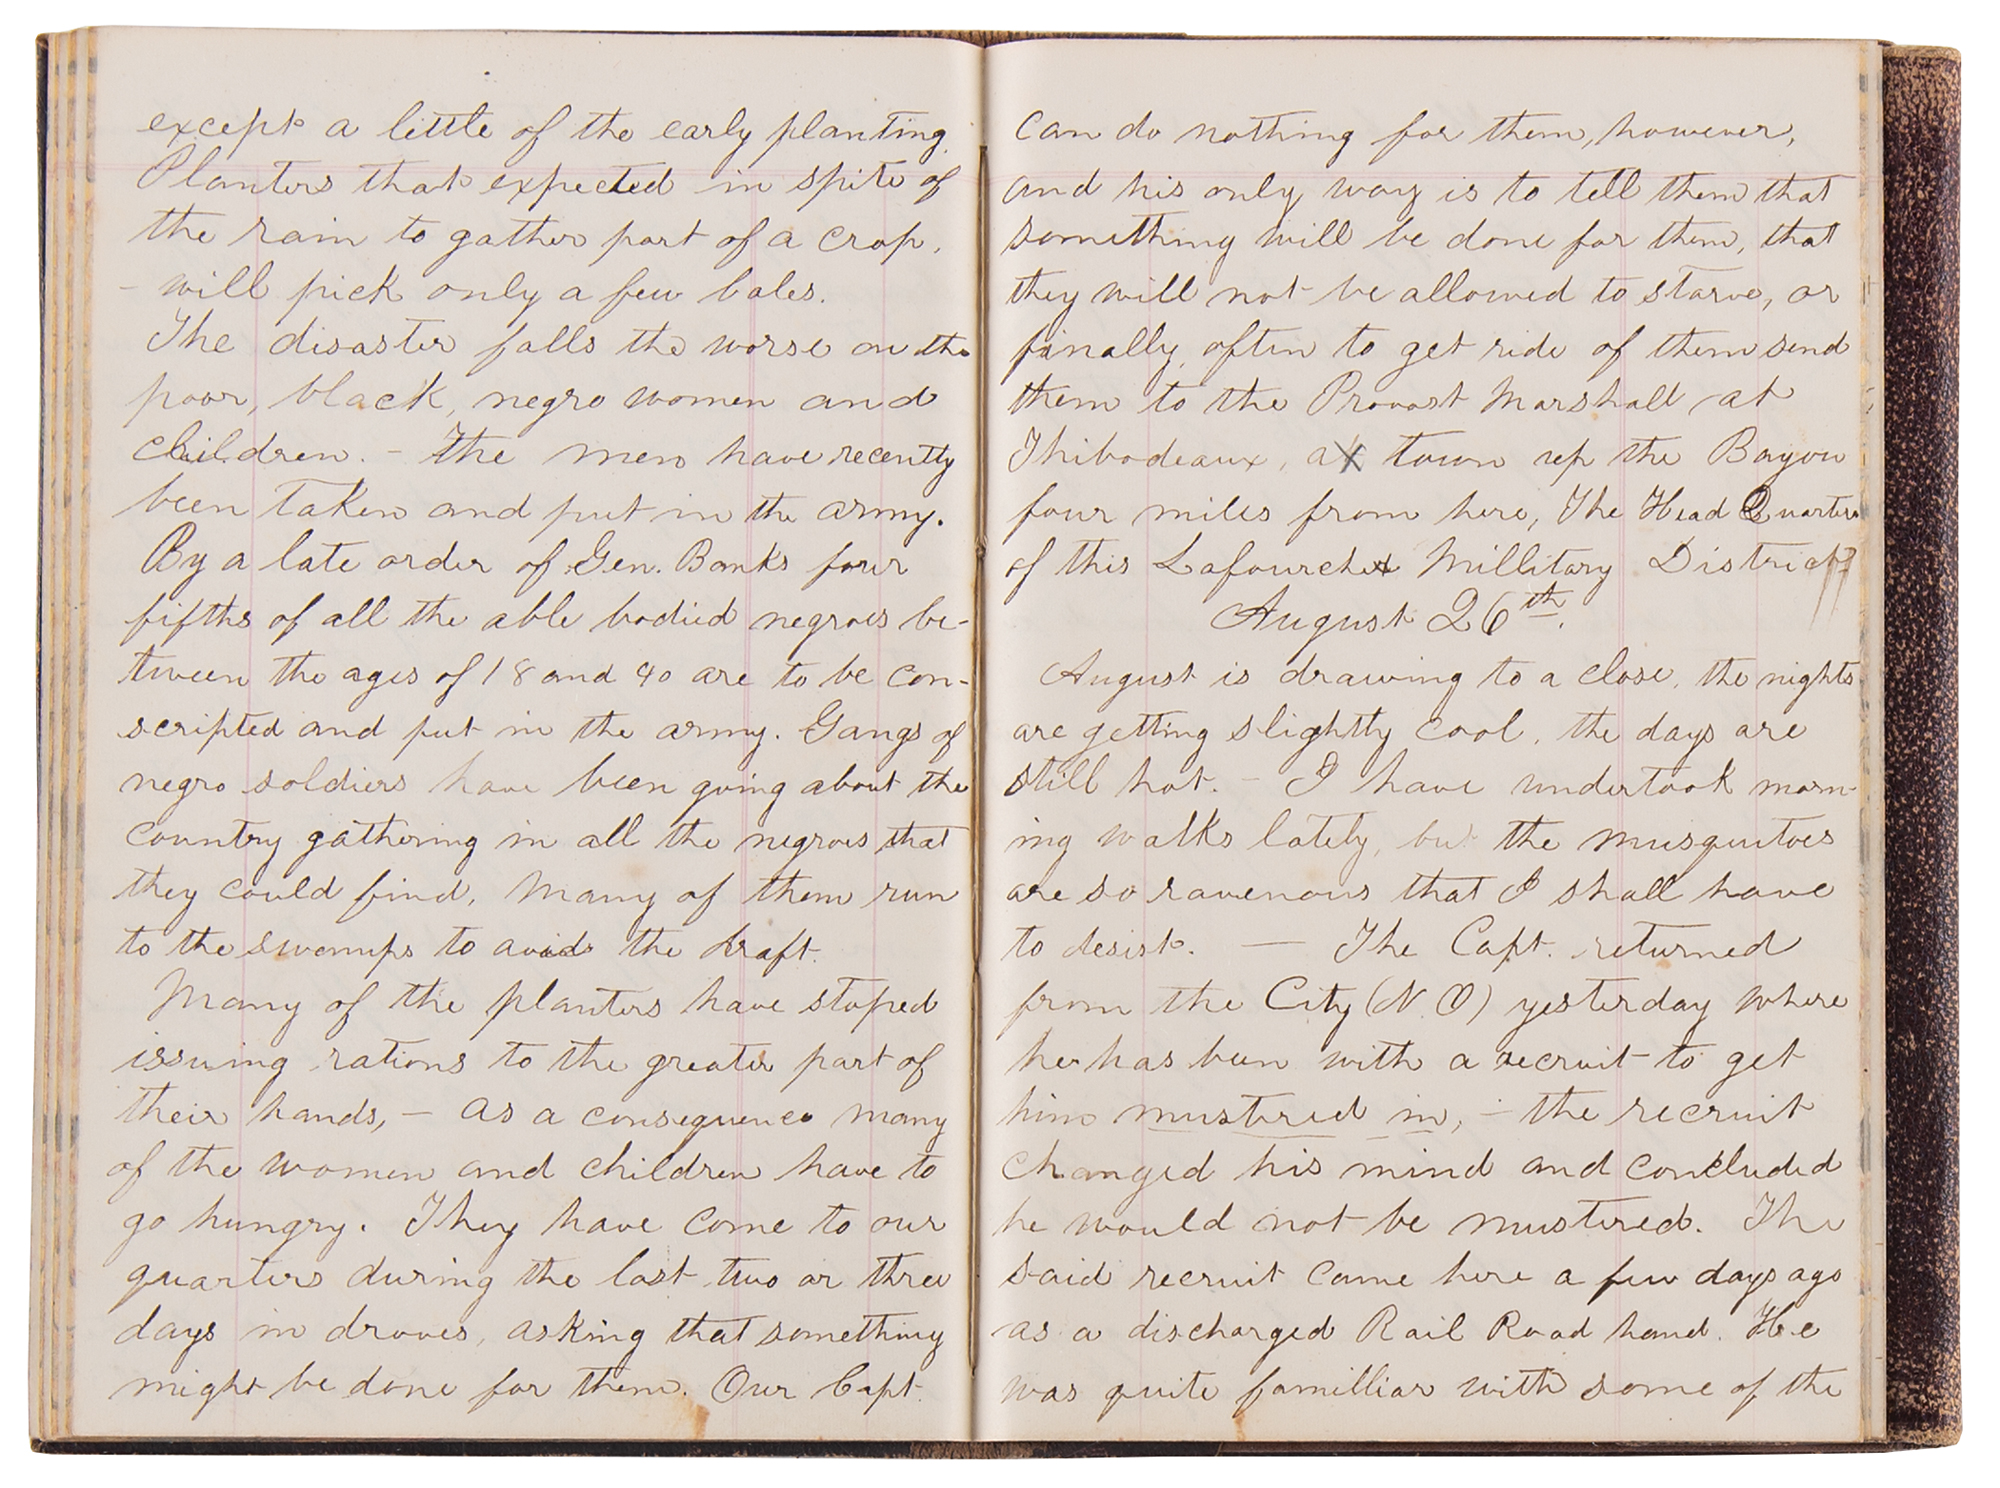 except a little of the early planting.
Planters that expected in spite of
the rain to gather part of a crop,
- will pick only a few bales.
The disaster falls the worse on the
poor, black, negro women and
children. - The men have recently
been taken and put in the army.
By a late order of Gen. Banks four
fifths of all the able bodied negroes be-
tween the ages of 18 and 40 are to be con-
scripted and put in the army. Gangs of
negro soldiers have been going about the
country gathering in all the negroes that
they could find, Many of them run
to the swamps to avoid the draft.
Many of the planters have stoped
issuing rations to the greater part of
their hands, - as a consequence many
of the women and children have to
go hungry. They have come to our
quarters during the last two or three
days in droves, asking that something
might be done for them. Our Capt.
can do nothing for them, however,
and his only way is to tell them that
something will be done for them, that
they will not be allowed to starve, or
finally, often to get ride of them send
them to the Provost Marshall at
Thibodeaux, a town up the Bayou
four miles from here, The Head Quarters
of this Lafourche Millitary District
August 26th.
August is drawing to a close, the nights
are getting slightly cool, the days are
still hot. - I have undertook morn-
ing walks lately, but the musquitoes
are so ravenous that I shall have
to desist. — The Capt. returned
from the City (N.O) yesterday where
he has been with a recruit to get
him mustered in, - the recruit
changed his mind and concluded
he would not be mustered. The
said recruit came here a few days ago
as a discharged Rail Road hand. He
was quite familliar with some of the